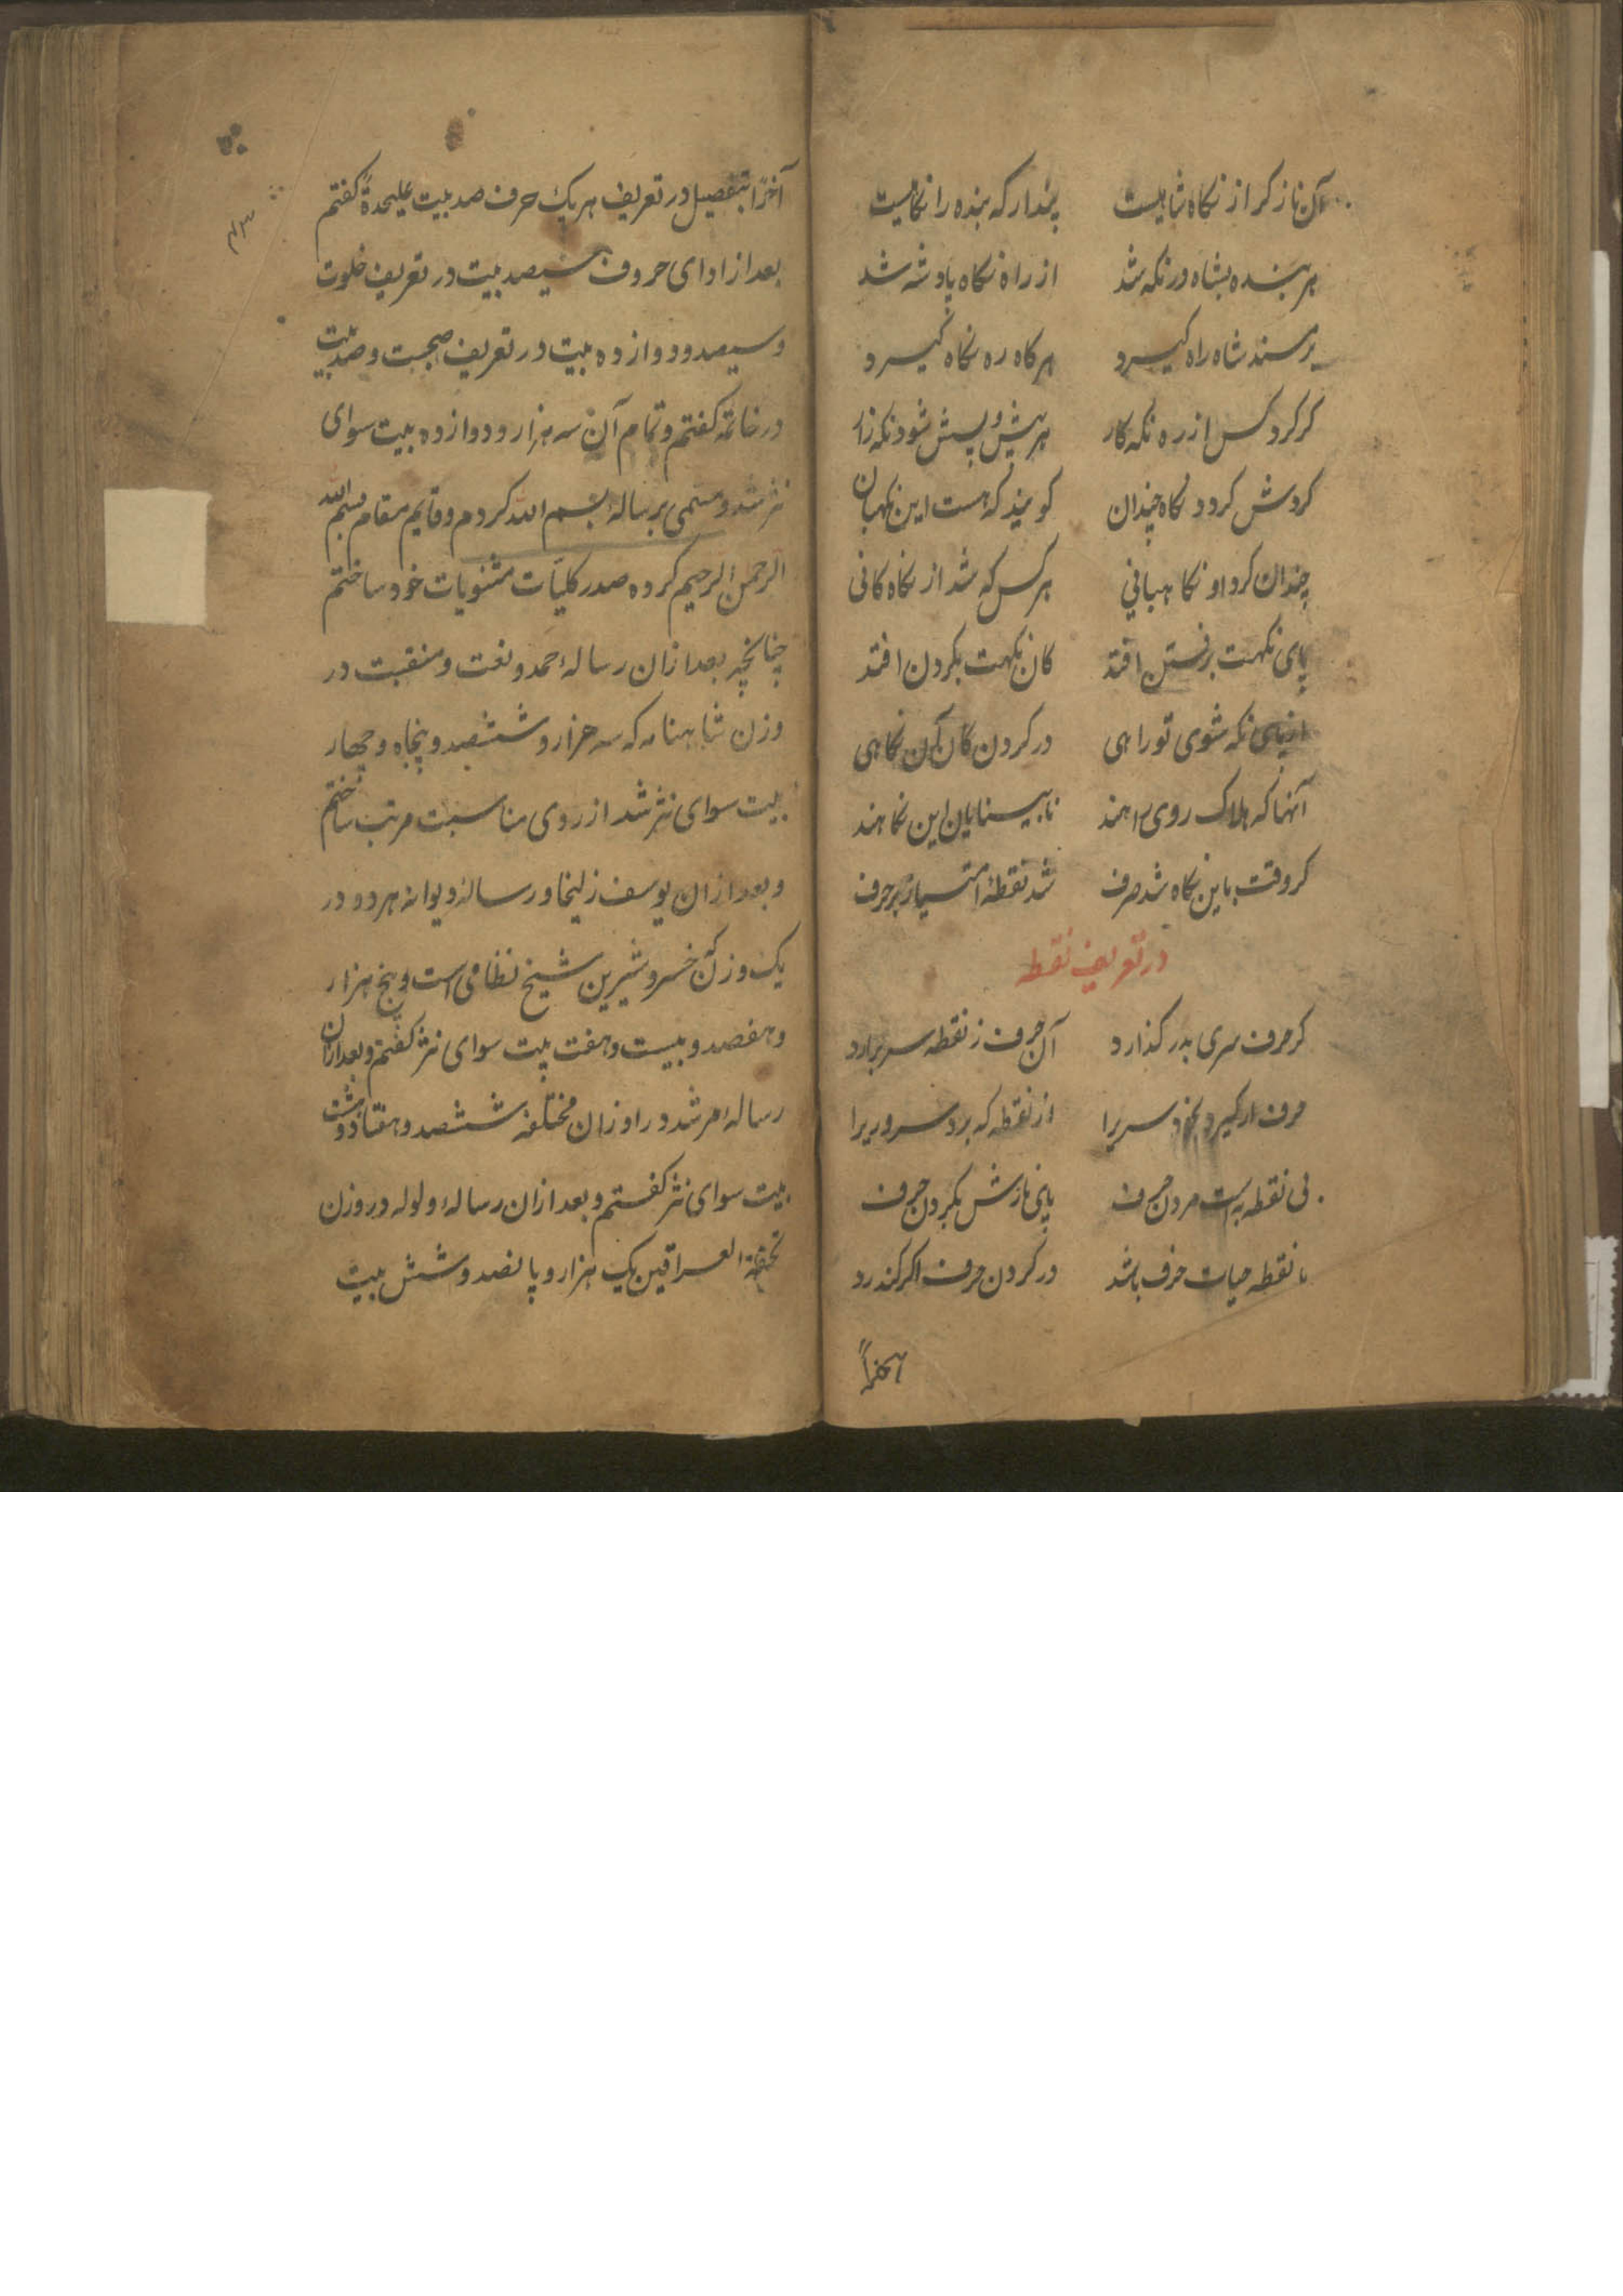 آن ناز کر از نکاه شاهیست پندار که بنده را نکاهیست
هر بنده بشاه در نکه شد از راه نکاه پادشه شد
بر مسند شاه راه کیرد هر کاه ره نکاه کیرد
کر کرد کس از ره نکه کار هر پیش و پسش شود نکه زار
کردش کردد نکاه چندان کو بیند که هست این نکهبان
چندان کرد او نکاهبانی هر کس که شد از نکاه کانی
پای نکهت برفتن افتد کان نکهت بکردن افتد
از پای نکه شوی تو راهی در کردن کان کن نکاهی
آنها که هلاک روی راهند نابینایان این نکاهند
کر وقت باین نکاه شد صرف شد نقطهٔ امتیاز بر حرف
در تعریف نقطه
کر حرف سری بدر کذارد آن حرف ز نقطه سر برارد
حرف ار کیرد بخود سریرا از نقطه که برد سروریرا
بی نقطه به است مردن حرف پای نازش بکردن حرف
با نقطه حیات حرف باشد در کردن حرف اکر کندرد
آخراً
آخراً بتفصیل در تعریف هر یک حرف صد بیت علیحدةً کفتم
بعد از ادای حروف سیصد بیت در تعریف خلوت
و سیصد و دوازده بیت در تعریف صحبت و صد بیت
در خاتمه کفتم و تمام آن سه هزار و دوازده بیت سوای
نثر شد و مسمی برسالهٔ بسم الله کردم و قایم مقام بسم الله
الرحمن الرحیم کرده صدر کلیات مثنویات خود ساختم
چنانچه بعد ازان رسالهٔ حمد و نعت و منقبت در
وزن شاهنامه که سه هزار و ششصد و پنجاه و چهار
بیت سوای نثر شد از روی مناسبت مرتب ساختم
و بعد ازان یوسف زلیخا و رسالهٔ دیوانه هر دو در
یک وزن خسرو شیرین شیخ نظامی است و پنج هزار
و هفصد و بیست و هفت بیت سوای نثر کفتم و بعد ازان
رسالهٔ مرشد در اوزان مختلفه ششصد و هفتاد و هشت
بیت سوای نثر کفتم و بعد ازان رسالهٔ ولوله در وزن
تحفة العراقین یک هزار و پانصد و شش بیت